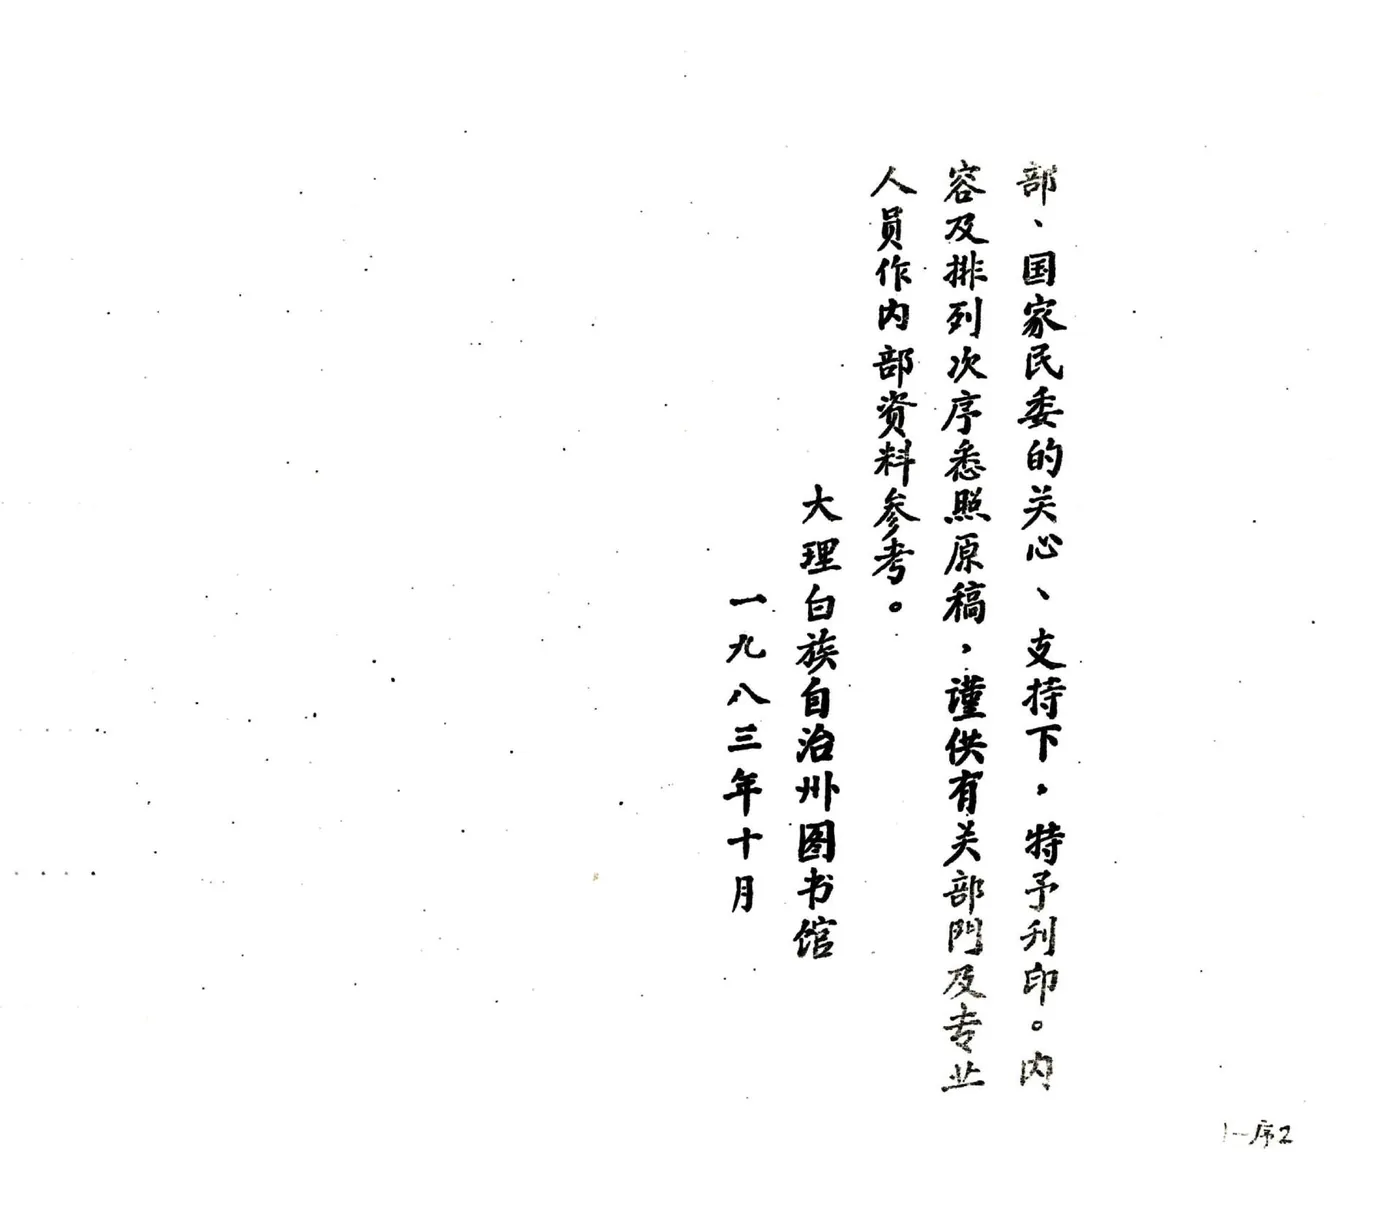 部、国家民委的关心、支持下，特予刊印。内
容及排列次序悉照原稿，谨供有关部門及专业
人员作内部资料参考。
大理白族自治州图书馆
一九八三年十月
1—序2